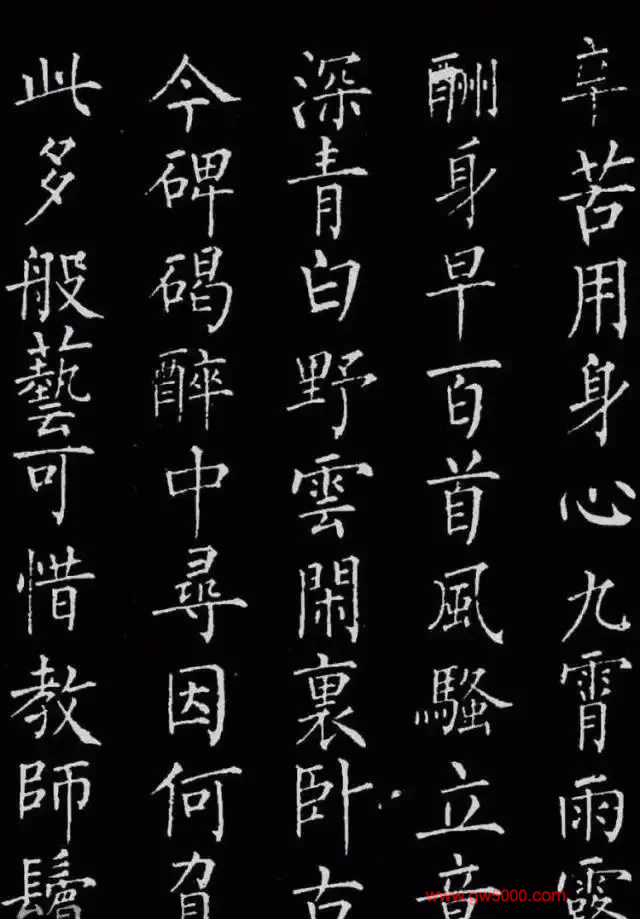 辛苦用身心九霄雨露
酬身早百首風騷立意
深青白野雲閑裏臥古
今碑碣醉中尋因何負
此多般藝可惜教師鬢
www.gw5000.com